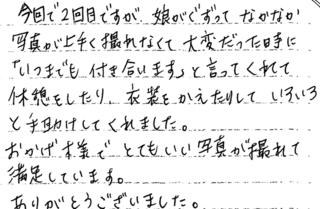 今回で2回目ですが 娘がぐずって なかなか
写真が上手く撮れなくて 大変だった時に
「いつまでも 付き合います」と言ってくれて
休憩をしたり、衣装をかえたりして いろいろ
と手助けしてくれました。
おかげ様で とてもいい写真が撮れて
満足しています。
ありがとうございました。